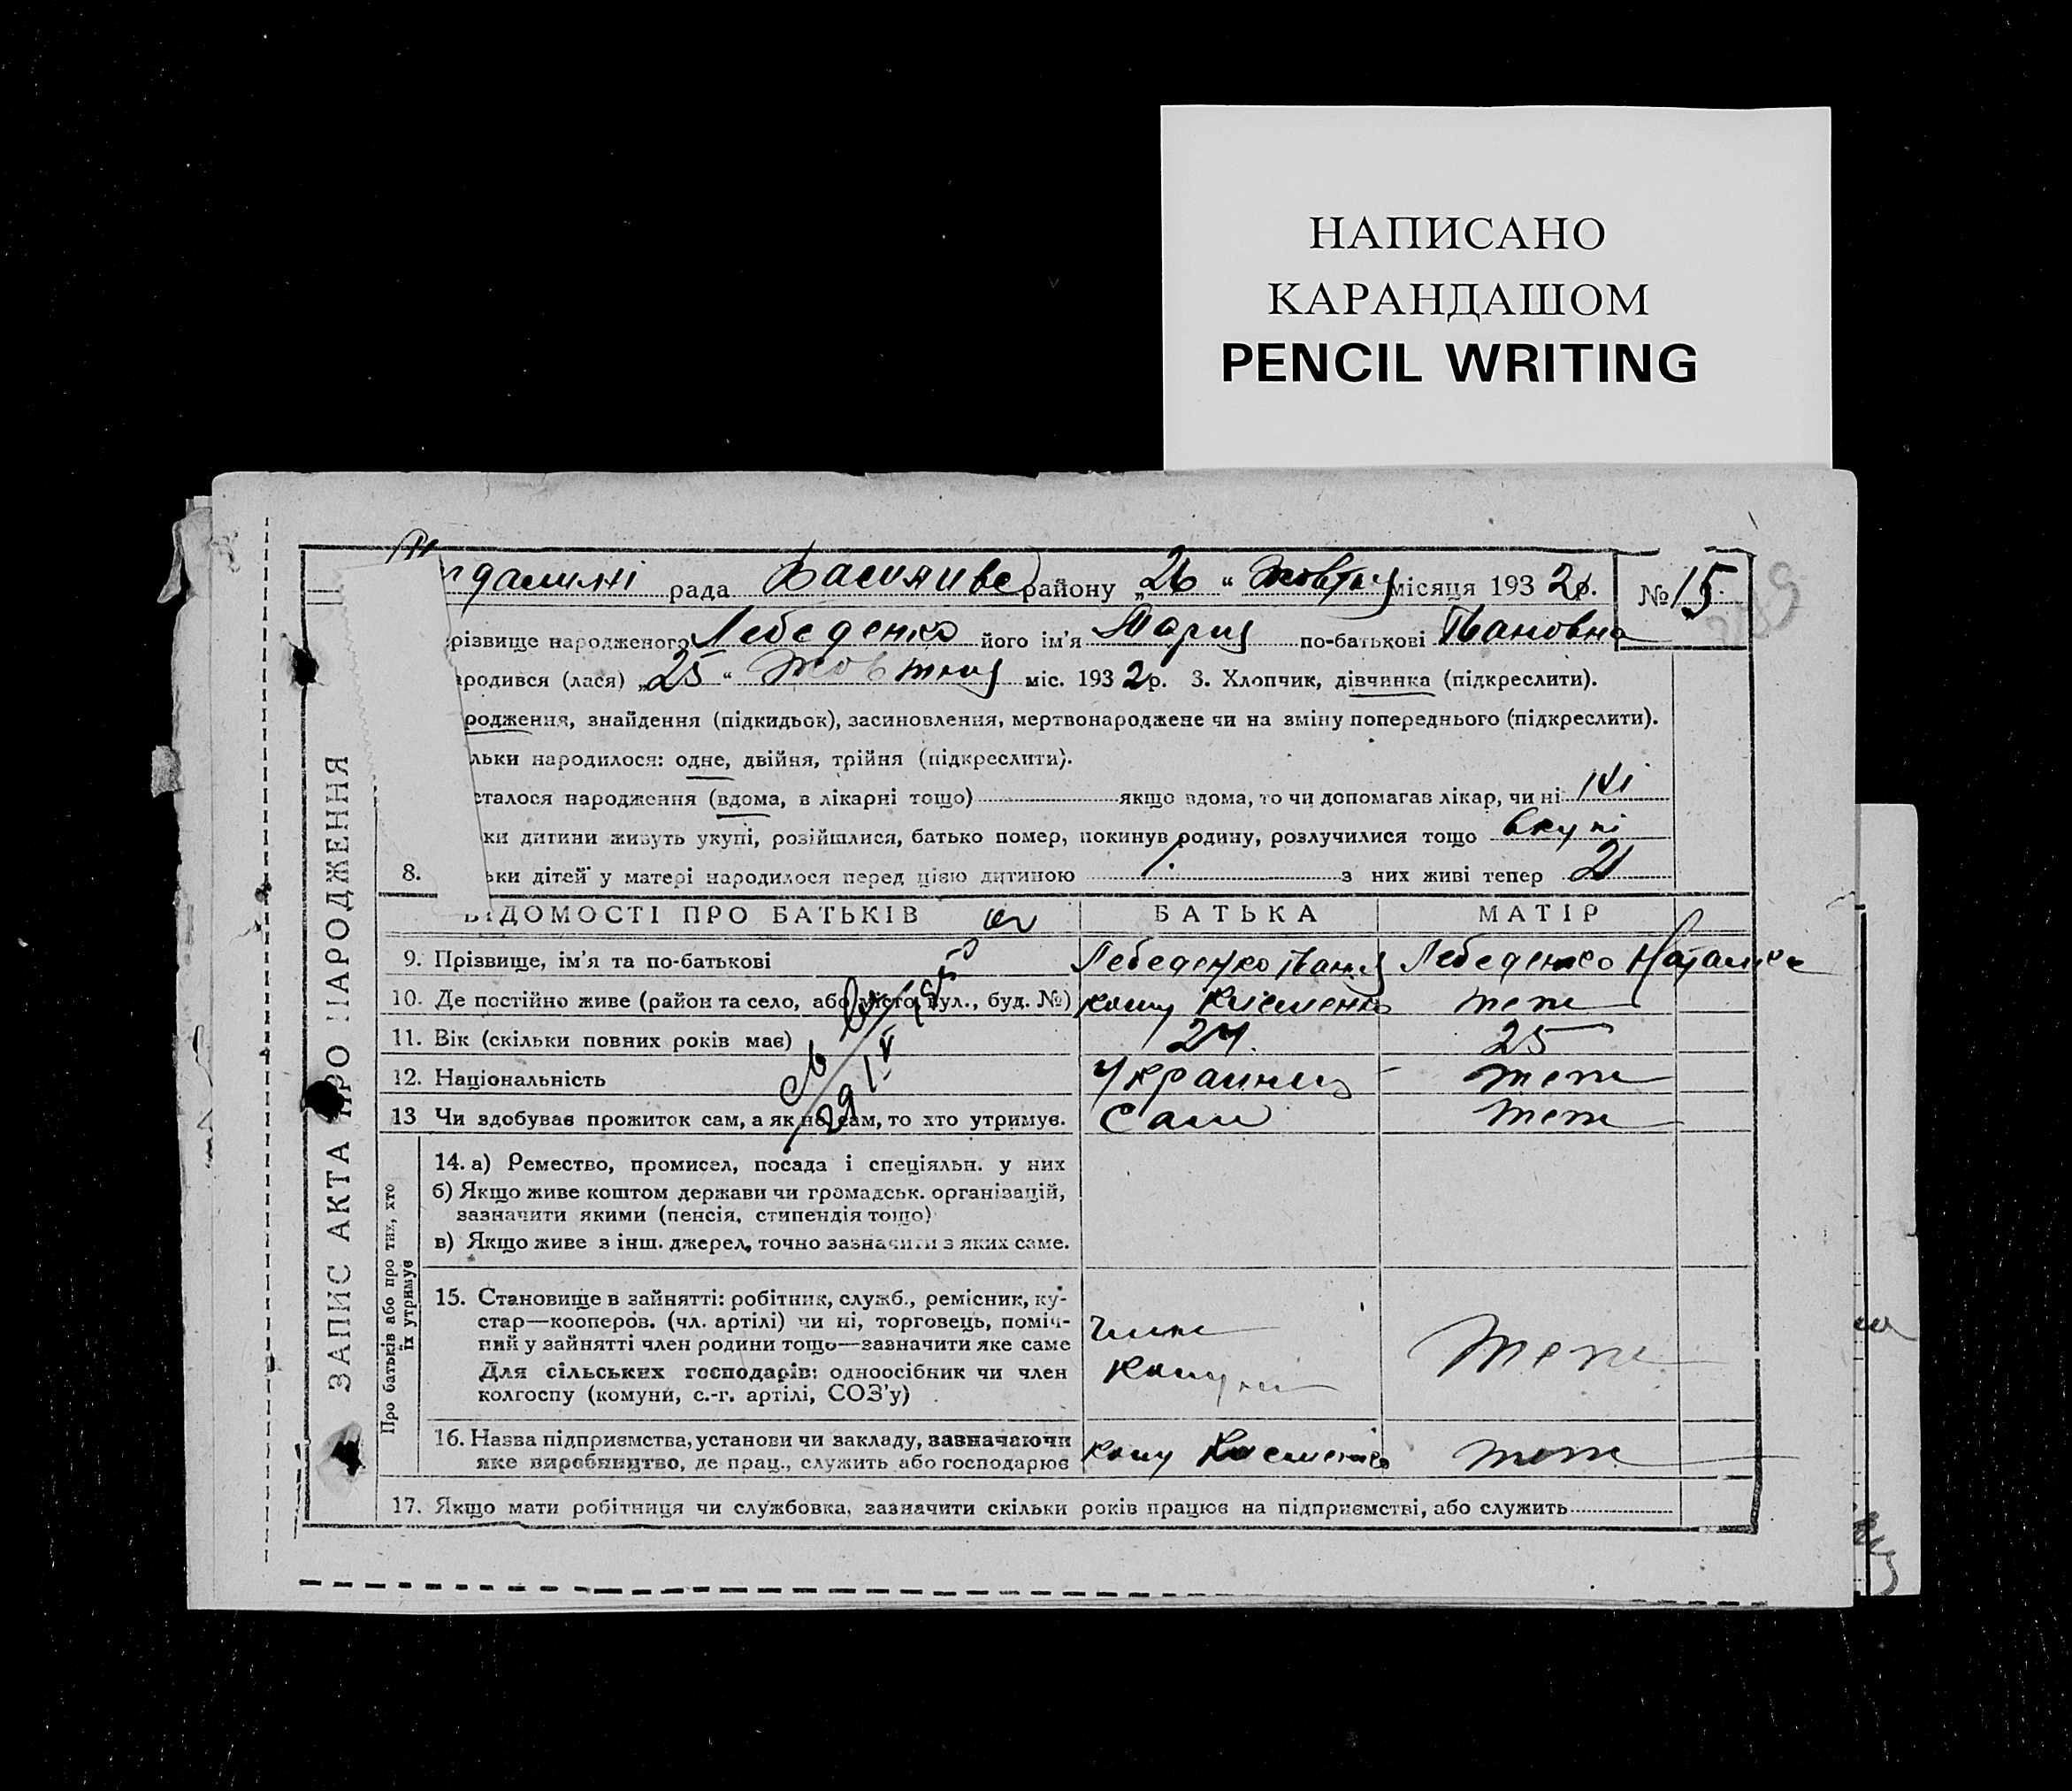 НАПИСАНО
КАРАНДАШОМ
PENCIL WRITING
рада району „26“ Жовтня місяця 1932р. № 15
різвище народженого Лебеденко його ім'я Мария по-батькові Івановна
ародився (лася) „25“ Жовтня міс. 1932р. 3. Хлопчик, дівчинка (підкреслити).
родження, знайдення (підкидьок), засиновлення, мертвонароджене чи на зміну попереднього (підкреслити).
льки народилося: одне, двійня, трійня (підкреслити).
сталося народження (вдома, в лікарні тощо) якщо вдома, то чи допомагав лікар, чи ні ні
ки дитини живуть укупі, розійшлися, батько помер, покинув родину, розлучилися тощо вкупі
8. ьки дітей у матері народилося перед цією дитиною 1. з них живі тепер 2
ВІДОМОСТІ ПРО БАТЬКІВ БАТЬКА МАТІР
9. Прізвище, ім'я та по-батькові Лебеденко Іван Лебеденко Наталка
10. Де постійно живе (район та село, або місто, вул., буд. №) теж
11. Вік (скільки повних років має) 24. 25
12. Національність Украинец теж
13 Чи здобував прожиток сам, а як не сам, то хто утримує. Сам теж
14. а) Ремество, промисел, посада і спеціяльн. у них
б) Якщо живе коштом держави чи громадськ. організацій,
зазначити якими (пенсія, стипендія тощо)
в) Якщо живе з інш. джерел, точно зазначити з яких саме.
15. Становище в зайнятті: робітник, служб., ремісник, ку-
стар—кооперов. (чл. артілі) чи ні, торговець, поміч-
ний у зайнятті член родини тощо—зазначити яке саме
Для сільських господарів: одноосібник чи член
колгоспу (комуни, с.-г. артілі, СОЗ'у)
член
комуни
теж
16. Назва підприємства, установи чи закладу, зазначаючи
яке виробництво, де прац., служить або господарює теж
17. Якщо мати робітниця чи службовка, зазначити скільки років працює на підприємстві, або служить
ЗАПИС АКТА ПРО НАРОДЖЕННЯ
Про батьків або про тих, хто
їх утримує